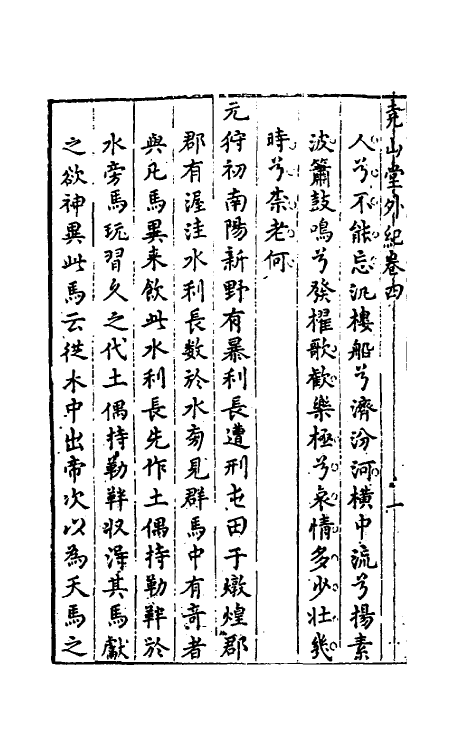 堯山堂外紀卷四 一
人兮不能忘汎樓船兮濟汾河橫中流兮揚素
波簫鼓鳴兮發櫂歌歡樂極兮哀情多少壯幾
時兮柰老何
元狩初南陽新野有暴利長遭刑屯田于燉煌郡
郡有渥洼水利長數於水旁見群馬中有竒者
與凡馬異来飲此水利長先作土偶持勒靽於
水旁馬玩習久之代土偶持勒靽收得其馬獻
之欲神異此馬云從水中出帝次以為天馬之